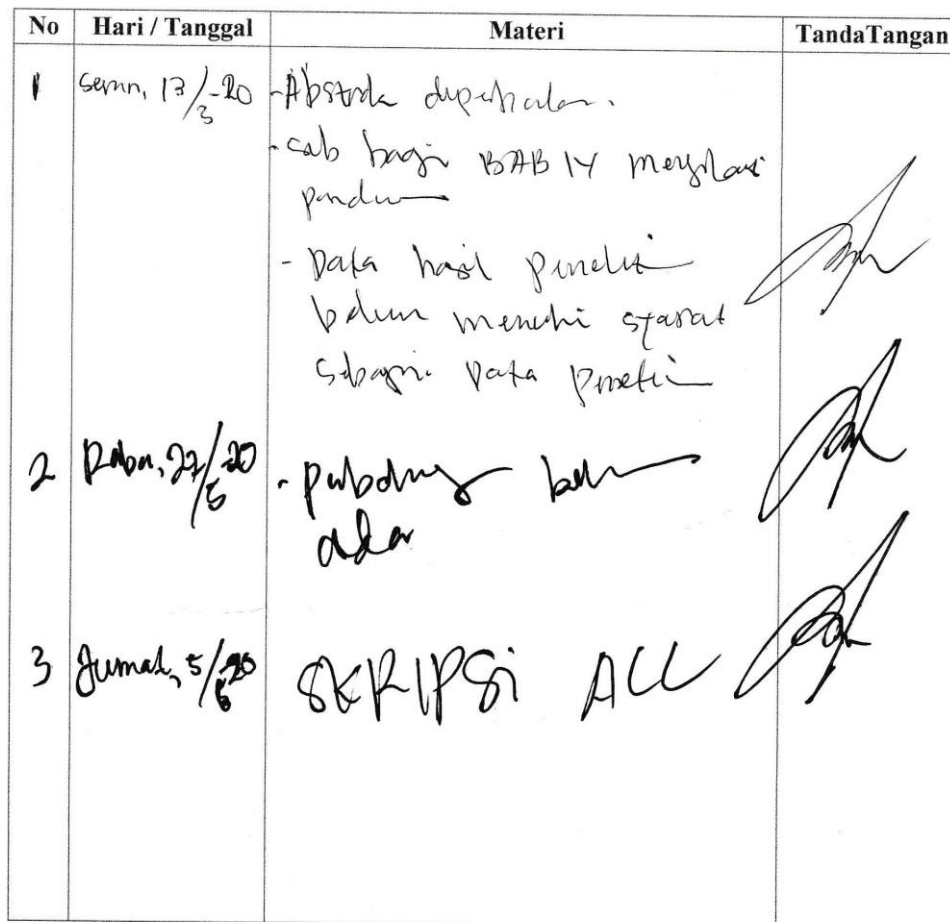 No Hari / Tanggal Materi TandaTangan
1 Senin, 13/3-20 - Abstrak diperhatikan.
- sub bagi BAB IV mengikuti
panduan
- Data hasil peneliti
belum memenuhi syarat
sebagai Data Peneliti
2 Rabu, 27/5-20 -
3 Jumat, 5/6-20 SKRIPSi ACC